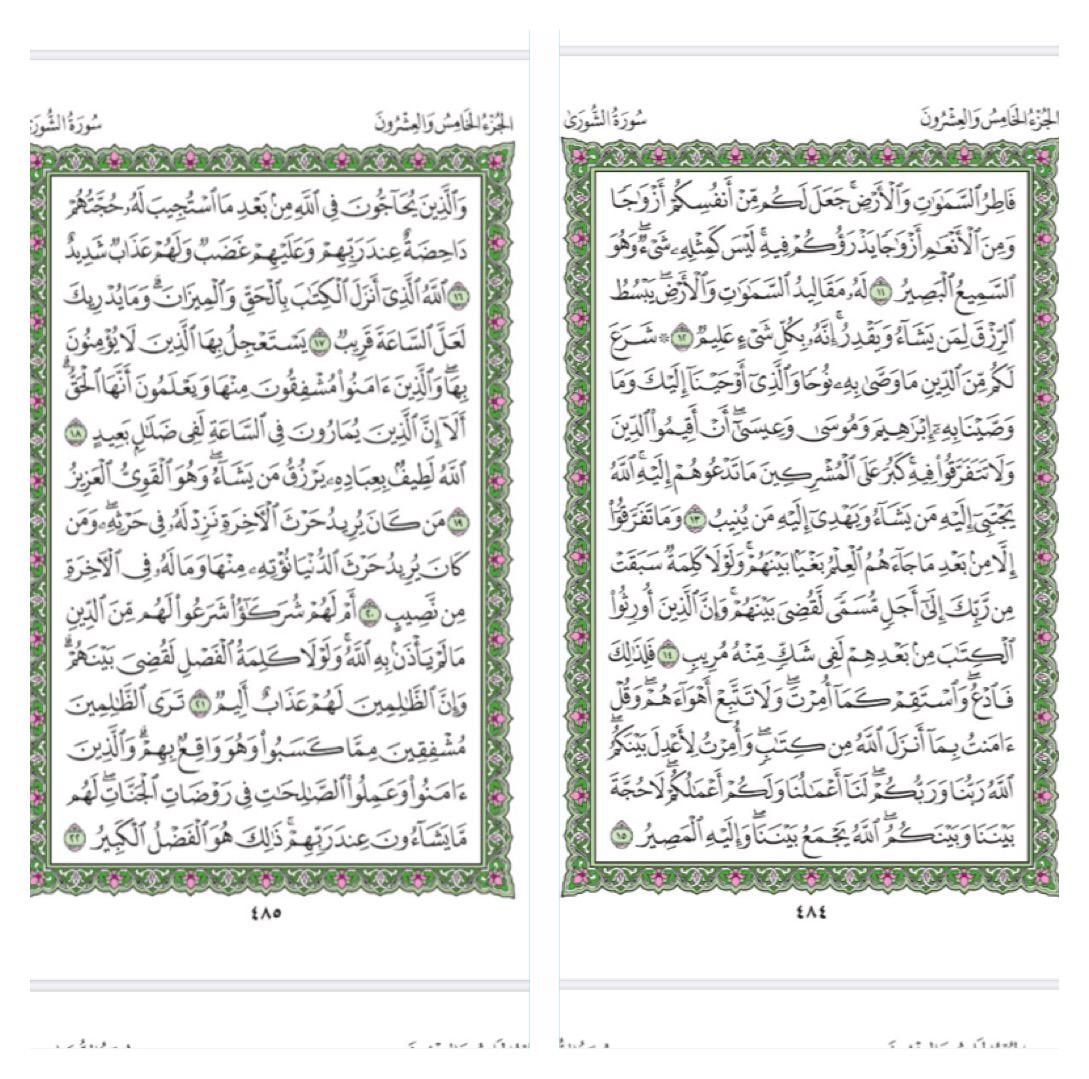 الجُزْءُ الخَامِسُ وَالعِشْرُونَ
سُورَةُ الشُّورَىٰ
فَاطِرُ السَّمَٰوَٰتِ وَالْأَرْضِ ۚ جَعَلَ لَكُم مِّنْ أَنفُسِكُمْ أَزْوَٰجًا
وَمِنَ الْأَنْعَٰمِ أَزْوَٰجًا يَذْرَؤُكُمْ فِيهِ ۚ لَيْسَ كَمِثْلِهِۦ شَىْءٌ ۖ وَهُوَ
السَّمِيعُ الْبَصِيرُ ١١ لَهُۥ مَقَالِيدُ السَّمَٰوَٰتِ وَالْأَرْضِ ۖ يَبْسُطُ
الرِّزْقَ لِمَن يَشَآءُ وَيَقْدِرُ ۚ إِنَّهُۥ بِكُلِّ شَىْءٍ عَلِيمٌ ١٢ ۞ شَرَعَ
لَكُم مِّنَ الدِّينِ مَا وَصَّىٰ بِهِۦ نُوحًا وَالَّذِىٓ أَوْحَيْنَآ إِلَيْكَ وَمَا
وَصَّيْنَا بِهِۦٓ إِبْرَٰهِيمَ وَمُوسَىٰ وَعِيسَىٰٓ ۖ أَنْ أَقِيمُوا۟ الدِّينَ
وَلَا تَتَفَرَّقُوا۟ فِيهِ ۚ كَبُرَ عَلَى الْمُشْرِكِينَ مَا تَدْعُوهُمْ إِلَيْهِ ۚ اللَّهُ
يَجْتَبِىٓ إِلَيْهِ مَن يَشَآءُ وَيَهْدِىٓ إِلَيْهِ مَن يُنِيبُ ١٣ وَمَا تَفَرَّقُوٓا۟
إِلَّا مِنۢ بَعْدِ مَا جَآءَهُمُ الْعِلْمُ بَغْيًۢا بَيْنَهُمْ ۚ وَلَوْلَا كَلِمَةٌ سَبَقَتْ
مِن رَّبِّكَ إِلَىٰٓ أَجَلٍ مُّسَمًّى لَّقُضِىَ بَيْنَهُمْ ۚ وَإِنَّ الَّذِينَ أُورِثُوا۟
الْكِتَٰبَ مِنۢ بَعْدِهِمْ لَفِى شَكٍّ مِّنْهُ مُرِيبٍ ١٤ فَلِذَٰلِكَ
فَادْعُ ۖ وَاسْتَقِمْ كَمَآ أُمِرْتَ ۖ وَلَا تَتَّبِعْ أَهْوَآءَهُمْ ۖ وَقُلْ
ءَامَنتُ بِمَآ أَنزَلَ اللَّهُ مِن كِتَٰبٍ ۖ وَأُمِرْتُ لِأَعْدِلَ بَيْنَكُمُ ۖ
اللَّهُ رَبُّنَا وَرَبُّكُمْ ۖ لَنَآ أَعْمَٰلُنَا وَلَكُمْ أَعْمَٰلُكُمْ ۖ لَا حُجَّةَ
بَيْنَنَا وَبَيْنَكُمُ ۖ اللَّهُ يَجْمَعُ بَيْنَنَا ۖ وَإِلَيْهِ الْمَصِيرُ ١٥
٤٨٤
الجُزْءُ الخَامِسُ وَالعِشْرُونَ
سُورَةُ الشُّورَ
وَالَّذِينَ يُحَآجُّونَ فِى اللَّهِ مِنۢ بَعْدِ مَا اسْتُجِيبَ لَهُۥ حُجَّتُهُمْ
دَاحِضَةٌ عِندَ رَبِّهِمْ وَعَلَيْهِمْ غَضَبٌ وَلَهُمْ عَذَابٌ شَدِيدٌ
١٦ اللَّهُ الَّذِىٓ أَنزَلَ الْكِتَٰبَ بِالْحَقِّ وَالْمِيزَانَ ۗ وَمَا يُدْرِيكَ
لَعَلَّ السَّاعَةَ قَرِيبٌ ١٧ يَسْتَعْجِلُ بِهَا الَّذِينَ لَا يُؤْمِنُونَ
بِهَا ۖ وَالَّذِينَ ءَامَنُوا۟ مُشْفِقُونَ مِنْهَا وَيَعْلَمُونَ أَنَّهَا الْحَقُّ ۗ
أَلَآ إِنَّ الَّذِينَ يُمَارُونَ فِى السَّاعَةِ لَفِى ضَلَٰلٍۭ بَعِيدٍ ١٨
اللَّهُ لَطِيفٌۢ بِعِبَادِهِۦ يَرْزُقُ مَن يَشَآءُ ۖ وَهُوَ الْقَوِىُّ الْعَزِيزُ
١٩ مَن كَانَ يُرِيدُ حَرْثَ الْءَاخِرَةِ نَزِدْ لَهُۥ فِى حَرْثِهِۦ ۖ وَمَن
كَانَ يُرِيدُ حَرْثَ الدُّنْيَا نُؤْتِهِۦ مِنْهَا وَمَا لَهُۥ فِى الْءَاخِرَةِ
مِن نَّصِيبٍ ٢٠ أَمْ لَهُمْ شُرَكَٰٓؤُا۟ شَرَعُوا۟ لَهُم مِّنَ الدِّينِ
مَا لَمْ يَأْذَنۢ بِهِ اللَّهُ ۚ وَلَوْلَا كَلِمَةُ الْفَصْلِ لَقُضِىَ بَيْنَهُمْ ۗ
وَإِنَّ الظَّٰلِمِينَ لَهُمْ عَذَابٌ أَلِيمٌ ٢١ تَرَى الظَّٰلِمِينَ
مُشْفِقِينَ مِمَّا كَسَبُوا۟ وَهُوَ وَاقِعٌۢ بِهِمْ ۗ وَالَّذِينَ
ءَامَنُوا۟ وَعَمِلُوا۟ الصَّٰلِحَٰتِ فِى رَوْضَاتِ الْجَنَّاتِ ۖ لَهُم
مَّا يَشَآءُونَ عِندَ رَبِّهِمْ ۚ ذَٰلِكَ هُوَ الْفَضْلُ الْكَبِيرُ ٢٢
٤٨٥